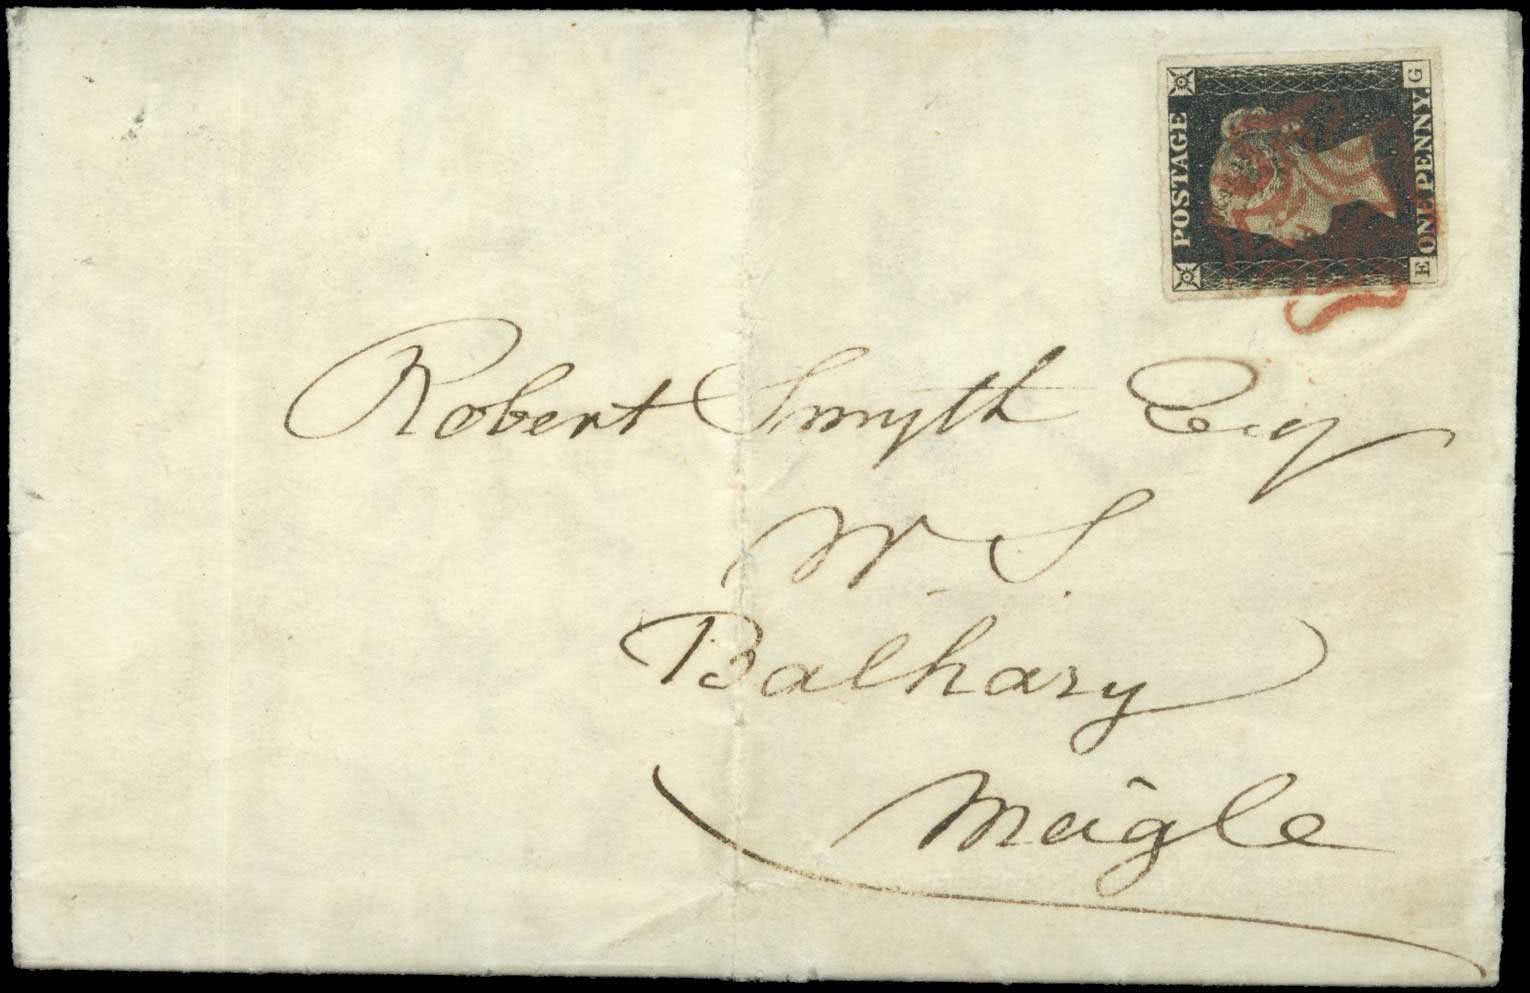 POSTAGE
E ONE PENNY. G
Robert Smyth Esq
W. S.
Balhary
Meigle